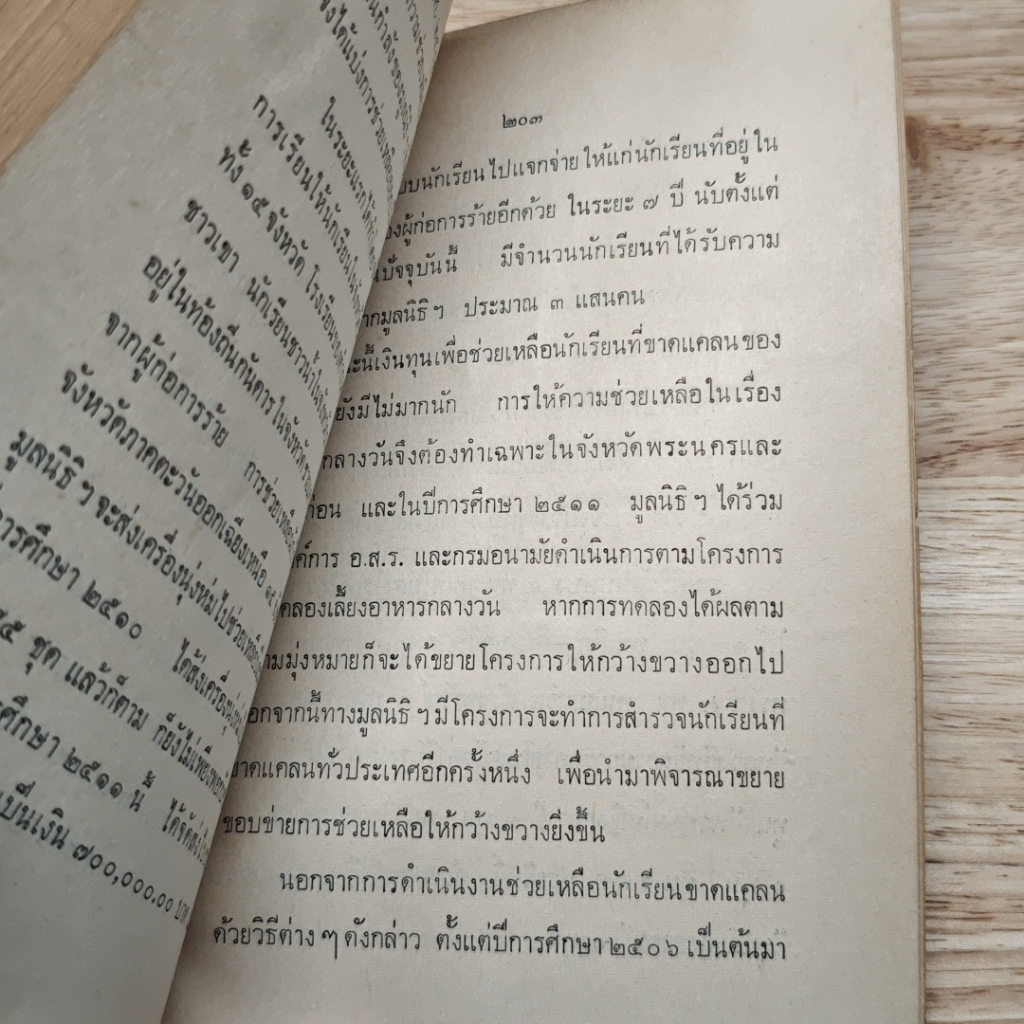 ในระยะแรกได้
การเรียนให้นักเรียนใน
ทั้ง ๑๕ จังหวัด โรงเรียน
ชาวเขา นักเรียนชาวน้ำใน
อยู่ในท้องถิ่นกันดารในจังหวัด
จากผู้ก่อการร้าย การช่วยเหลือ
จังหวัดภาคตะวันออกเฉียงเหนือ
มูลนิธิ ฯ จะส่งเครื่องนุ่งห่มไปช่วยเหลือ
การศึกษา ๒๕๑๐ ได้ส่งเครื่องนุ่งห่ม
ชุด แล้วก็ตาม ก็ยังไม่เพียงพอ
ศึกษา ๒๕๑๑ นี้ ได้จัดส่ง
เป็นเงิน ๗๐๐,๐๐๐.๐๐ บาท
๒๐๓
นักเรียนไปแจกจ่ายให้แก่นักเรียนที่อยู่ใน
ผู้ก่อการร้ายอีกด้วย ในระยะ ๗ ปี นับตั้งแต่
ปัจจุบันนี้ มีจำนวนนักเรียนที่ได้รับความ
มูลนิธิ ฯ ประมาณ ๓ แสนคน
เงินทุนเพื่อช่วยเหลือนักเรียนที่ขาดแคลนของ
ยังมีไม่มากนัก การให้ความช่วยเหลือในเรื่อง
กลางวันจึงต้องทำเฉพาะในจังหวัดพระนครและ
ก่อน และในปีการศึกษา ๒๕๑๑ มูลนิธิ ฯ ได้ร่วม
อ.ส.ร. และกรมอนามัยดำเนินการตามโครงการ
ทดลองเลี้ยงอาหารกลางวัน หากการทดลองได้ผลตาม
ความมุ่งหมายก็จะได้ขยายโครงการให้กว้างขวางออกไป
นอกจากนี้ทางมูลนิธิ ฯ มีโครงการจะทำการสำรวจนักเรียนที่
ขาดแคลนทั่วประเทศอีกครั้งหนึ่ง เพื่อนำมาพิจารณาขยาย
ขอบข่ายการช่วยเหลือให้กว้างขวางยิ่งขึ้น
นอกจากการดำเนินงานช่วยเหลือนักเรียนขาดแคลน
ด้วยวิธีต่าง ๆ ดังกล่าว ตั้งแต่ปีการศึกษา ๒๕๐๖ เป็นต้นมา